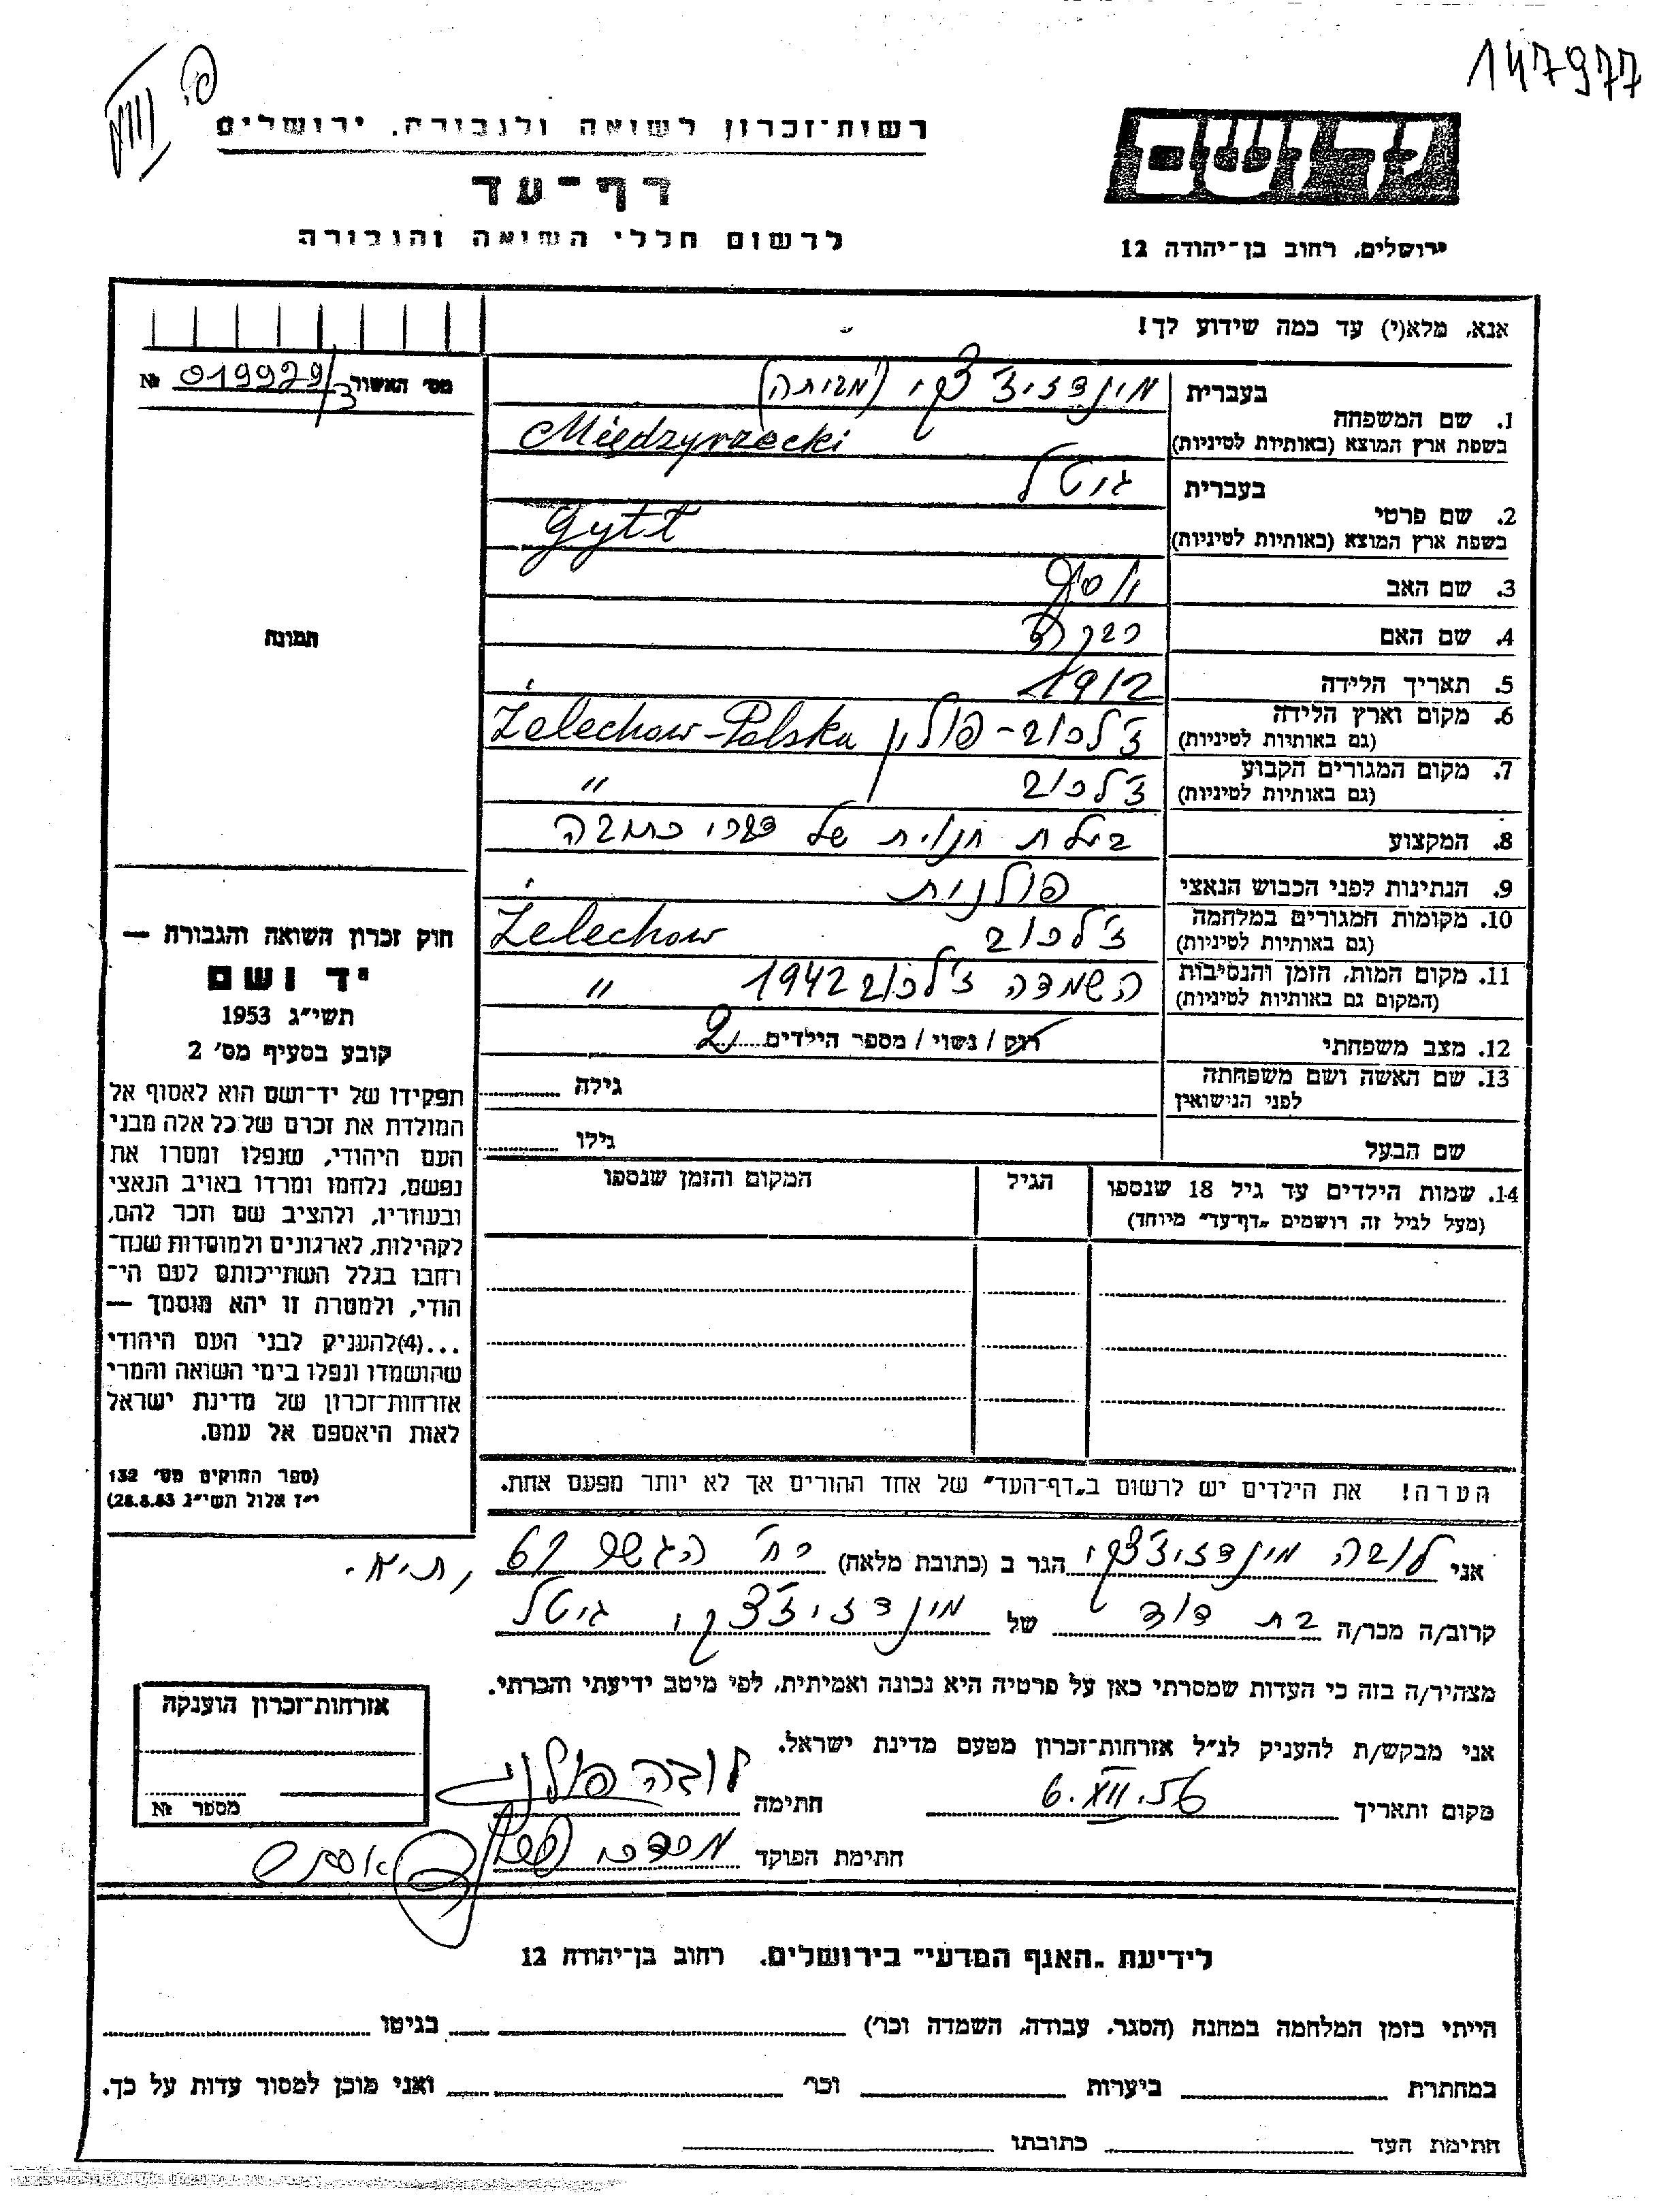 147977
VIII
פ.
יד ושם
רשות־זכרון לשואה ולגבורה, ירושלים
דף־עד
לרשום חללי השואה והגבורה
ירושלים, רחוב בן־יהודה 12
אנא, מלא(י) עד כמה שידוע לך!
מס׳ האשור 019929/3 №
1. שם המשפחה
בעברית מינדזיז׳צקי
בשפת ארץ המוצא (באותיות לטיניות) Międzyrzecki
2. שם פרטי
בעברית גיטל
בשפת ארץ המוצא (באותיות לטיניות) Gytł
3. שם האב יוסף
4. שם האם רבקה
5. תאריך הלידה 1912
6. מקום וארץ הלידה ז׳לכוב - פולין Żelechow-Polska
(גם באותיות לטיניות)
7. מקום המגורים הקבוע ז׳לכוב "
(גם באותיות לטיניות)
8. המקצוע בעלת חנוית של צרכי כתיבה
9. הנתינות לפני הכבוש הנאצי פולנית
10. מקומות המגורים במלחמה ז׳לכוב Żelechow
(גם באותיות לטיניות)
11. מקום המות, הזמן והנסיבות השמדה ז׳לכוב 1942 "
(המקום גם באותיות לטיניות)
12. מצב משפחתי רוק / נשוי / מספר הילדים 2
13. שם האשה ושם משפחתה
לפני הנישואין
גילה
שם הבעל
גילו
14. שמות הילדים עד גיל 18 שנספו
(מעל לגיל זה רושמים „דף־עד״ מיוחד)
הגיל
המקום והזמן שנספו
הערה! את הילדים יש לרשום ב„דף־העד״ של אחד ההורים אך לא יותר מפעם אחת.
תמונה
חוק זכרון השואה והגבורה —
יד ושם
תשי״ג 1953
קובע בסעיף מס׳ 2
תפקידו של יד־ושם הוא לאסוף אל
המולדת את זכרם של כל אלה מבני
העם היהודי, שנפלו ומסרו את
נפשם, נלחמו ומרדו באויב הנאצי
ובעוזריו, ולהציב שם וזכר להם,
לקהילות, לארגונים ולמוסדות שנח־
רחבו בגלל השתייכותם לעם הי־
הודי, ולמטרה זו יהא מוסמך —
...(4)להעניק לבני העם היהודי
שהושמדו ונפלו בימי השואה והמרי
אזרחות־זכרון של מדינת ישראל
לאות היאספם אל עמם.
(ספר החוקים מס׳ 132
י״ז אלול תשי״ג 28.8.53)
אני לובה מינדזיז׳צקי הגר ב (כתובת מלאה) רח׳ 67 ת״א.
קרוב/ה מכר/ה בת דוד של מינדזיז׳צקי, גיטל
מצהיר/ה בזה כי העדות שמסרתי כאן על פרטיה היא נכונה ואמיתית, לפי מיטב ידיעתי והכרתי.
אני מבקש/ת להעניק לנ״ל אזרחות־זכרון מטעם מדינת ישראל.
מקום ותאריך 6.XII.56 חתימה לובה
חתימת הפוקד מרדכי
אזרחות־זכרון הוענקה
מספר №
לידיעת „האגף המדעי״ בירושלים. רחוב בן־יהודה 12
הייתי בזמן המלחמה במחנה (הסגר, עבודה, השמדה וכו׳) בגיטו
במחתרת ביערות וכו׳ ואני מוכן למסור עדות על כך.
חתימת העד כתובתו